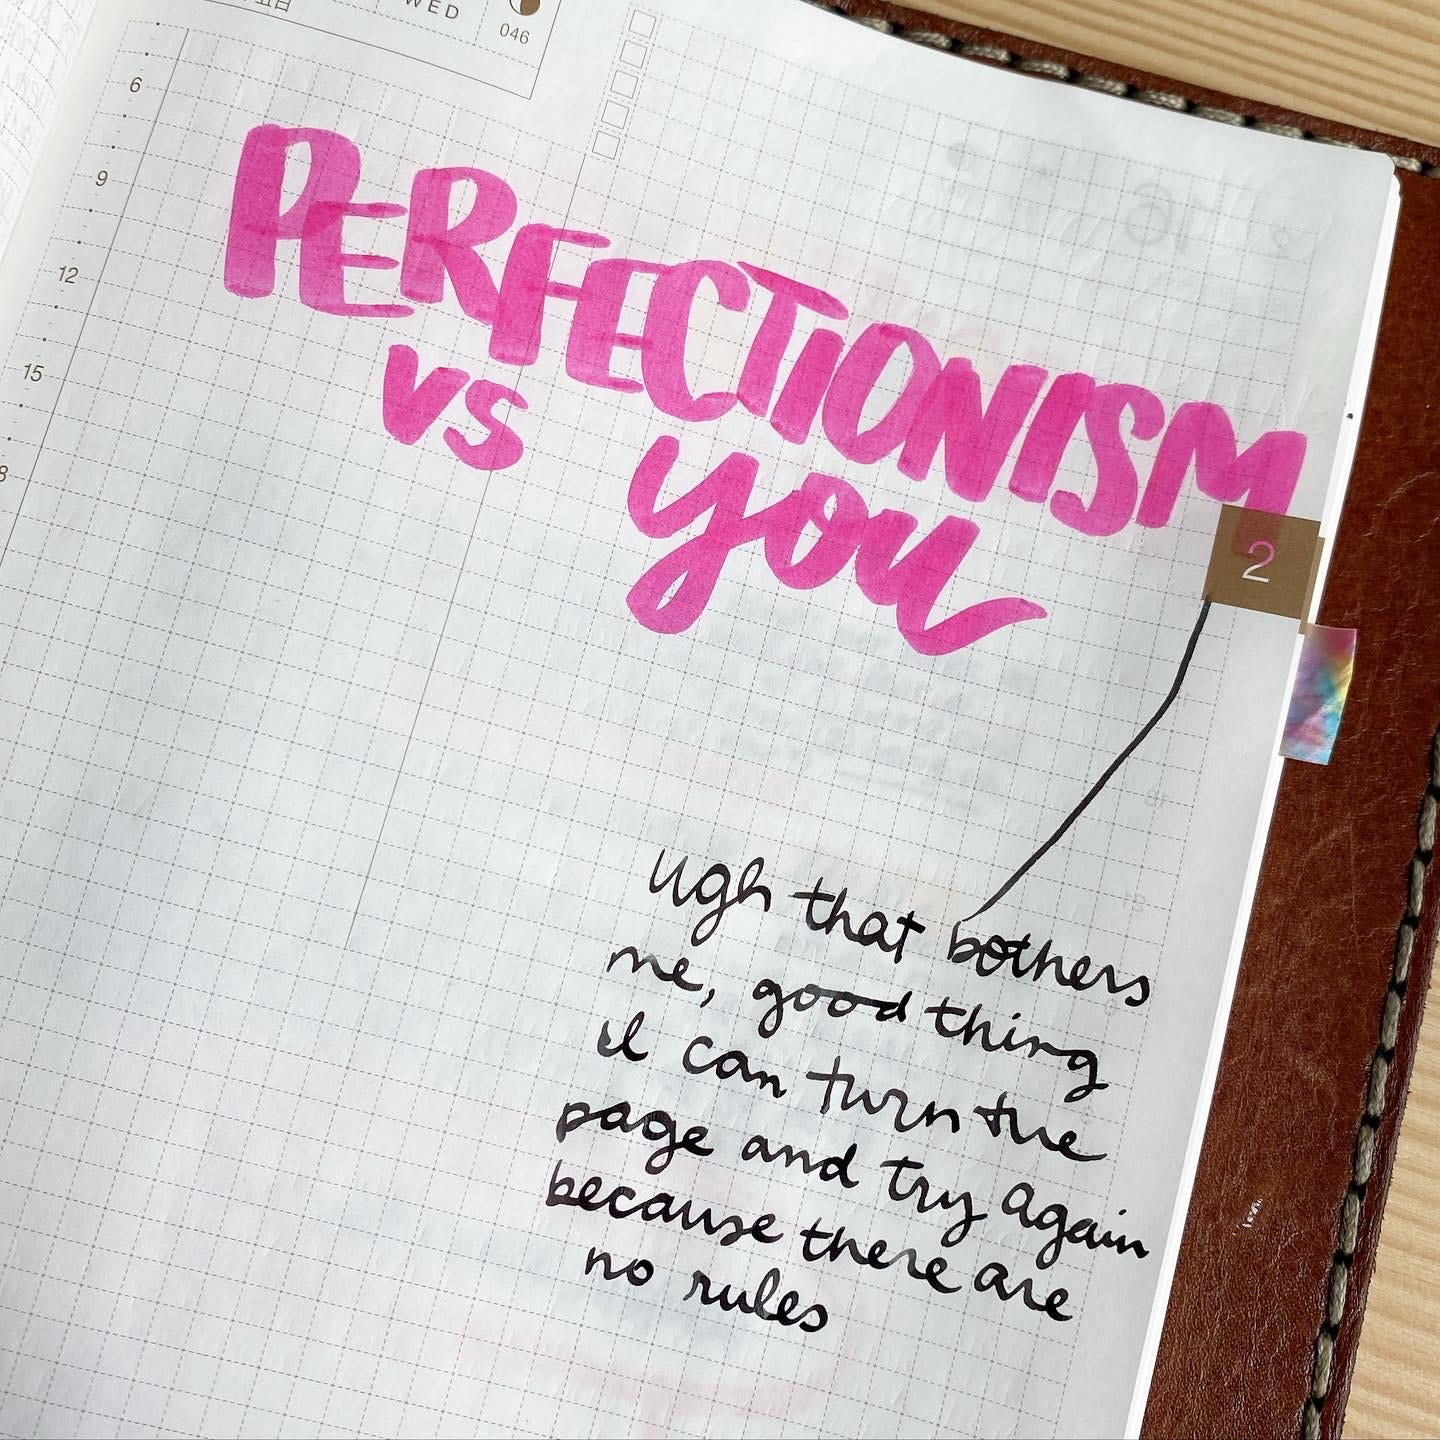 WED
046
6
9
12
15
PERFECTIONISM
vs you
2
Ugh that bothers
me, good thing
I can turn the
page and try again
because there are
no rules